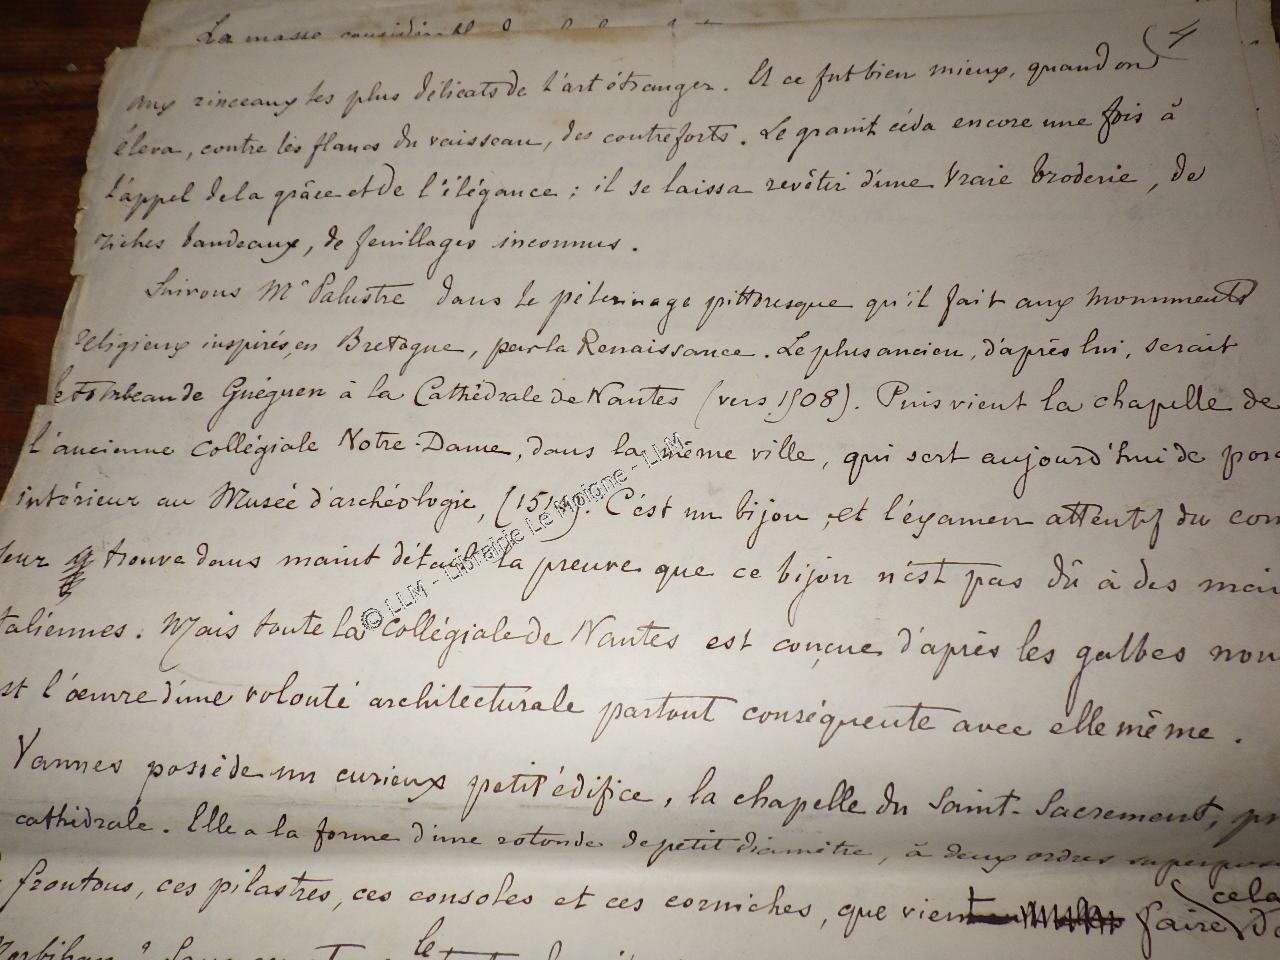 La masse considérable
4
aux rinceaux les plus délicats de l'art étranger. Et ce fut bien mieux, quand on
éleva, contre les flancs du vaisseau, des contreforts. Le granit céda encore une fois à
l'appel de la grâce et de l'élégance ; il se laissa revêtir d'une vraie broderie, de
riches bandeaux, de feuillages inconnus.
Suivons Mr Palustre dans le pèlerinage pittoresque qu'il fait aux monuments
religieux inspirés, en Bretagne, par la Renaissance. Le plus ancien, d'après lui, serait
le tombeau de Guéguen à la Cathédrale de Nantes (vers 1508). Puis vient la chapelle de
l'ancienne collégiale Notre-Dame, dans la même ville, qui sert aujourd'hui de
intérieur au Musée d'archéologie, C'est un bijou, et l'examen attentif du
trouve dans maint détail la preuve que ce bijou n'est pas dû à des
taliennes. Mais toute la collégiale de Nantes est conçue d'après les galbes
st l'oeuvre d'une volonté architecturale partout conséquente avec elle même.
Vannes possède un curieux petit édifice, la chapelle du Saint-Sacrement,
cathédrale. Elle a la forme d'une rotonde de petit diamètre, à deux ordres
frontons, ces pilastres, ces consoles et ces corniches, que vient faire cela
le
© LLM - Librairie Le Moigne - LLM